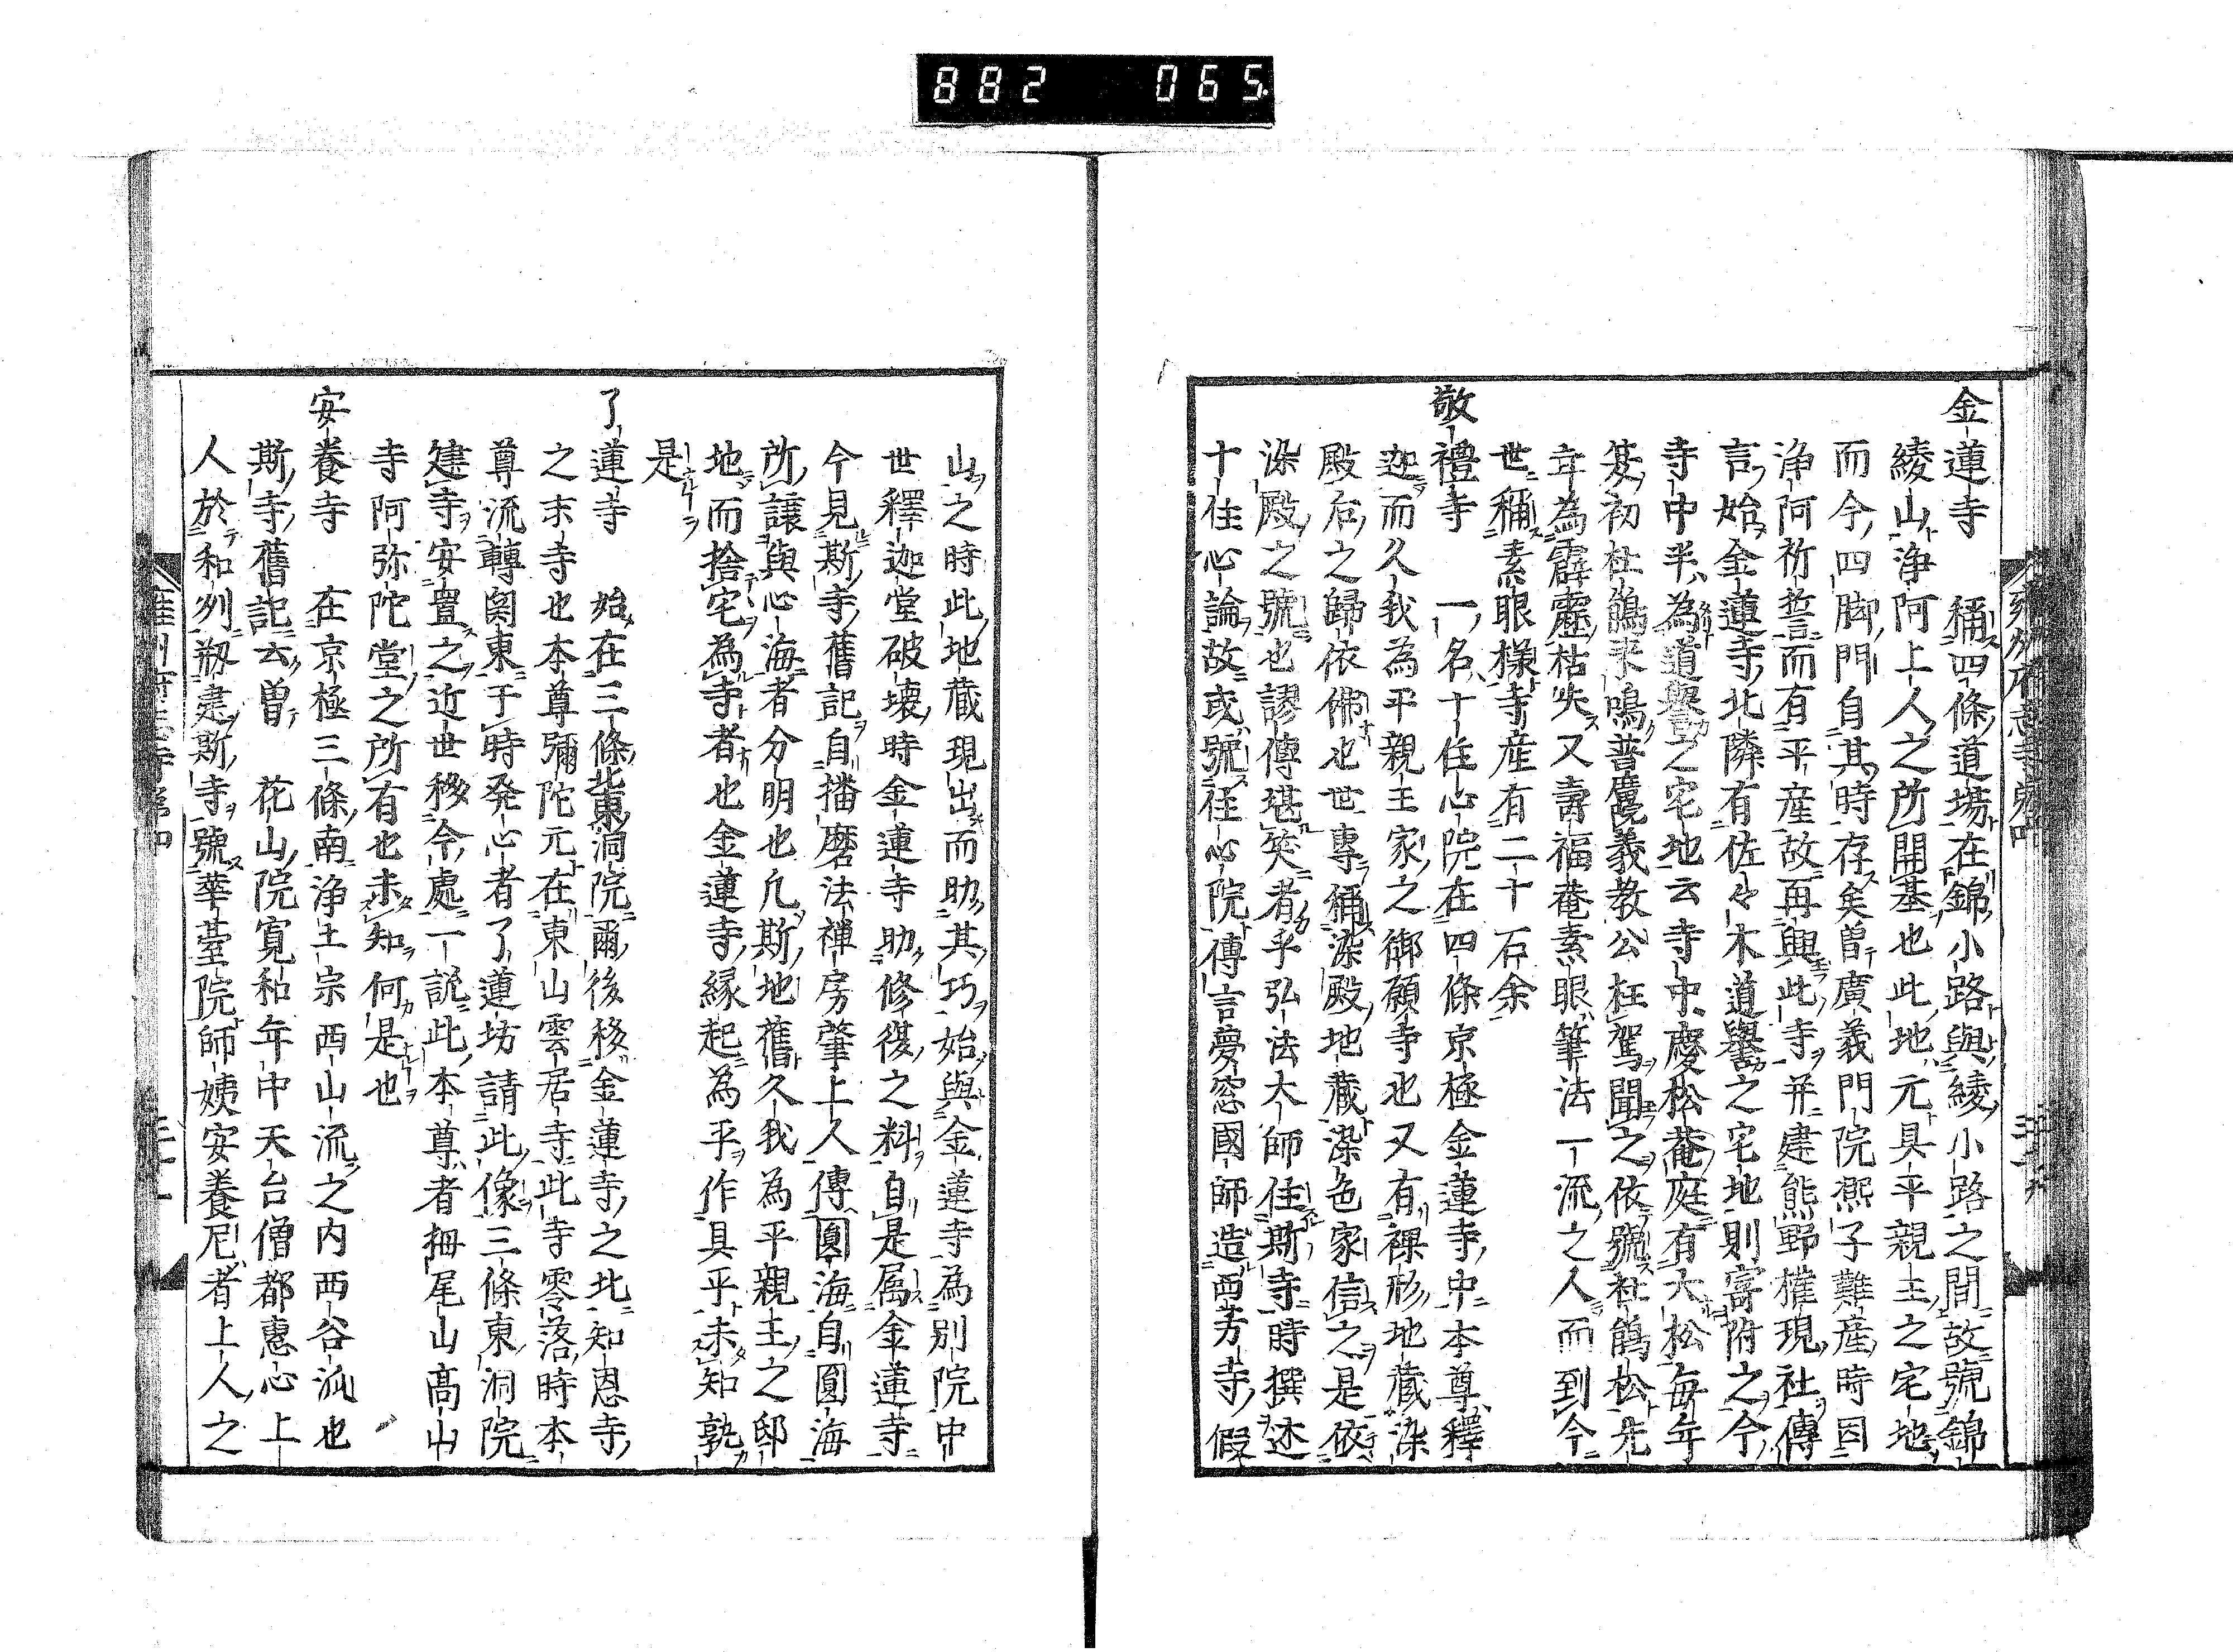 882 065
金蓮寺 稱四條道場在錦小路與綾小路之間故號錦
綾山浄阿上人之所開基也此地元具平親王之宅地
而今四脚門自其時存矣曽廣義門院凞子難産時因
浄阿祈誓而有平産故再興此寺并建熊野權現社傳
言始金蓮寺北隣有佐々木道譽之宅地則寄附之今
寺中半為道譽之宅地云寺中慶松菴庭有大松毎年
夏初杜鵑来鳴普廣院義教公枉駕聞之依號杜鵑松先
年為霹靂枯失又壽福菴素眼筆法一流之人而到今
世稱素眼様寺産有二十石余
敬禮寺 一名十住心院在四條京極金蓮寺中本尊釋
迦而久我為平親王家之御願寺也又有裸形地蔵染
殿后之歸依佛也世專稱染殿地蔵染色家信之是依
染殿之號也謬傳堪笑者乎弘法大師住斯寺時撰述
十住心論故或號住心院傳言夢窓國師造西芳寺假
山之時此地蔵現出而助其巧始與金蓮寺為別院中
世釋迦堂破壊時金蓮寺助修復之料自是属金蓮寺
今見斯寺舊記自播磨法禅房肇上人傳圓海自圓海
所讓與心海者分明也凡斯地舊久我為平親王之邸
地而捨宅為寺者也金蓮寺縁起為平作具平未知孰
是
了蓮寺 始在三條北東洞院爾後移金蓮寺之北知恩寺
之末寺也本尊彌陀元在東山雲居寺此寺零落時本
尊流轉関東于時発心者了蓮坊請此像三條東洞院
建寺安置之近世移今處一説此本尊者栂尾山高山
寺阿弥陀堂之所有也未知何是也
安養寺 在京極三條南浄土宗西山流之内西谷流也
斯寺舊記云曽 花山院寛和年中天台僧都惠心上
人於和州剏建斯寺號華臺院師姨安養尼者上人之